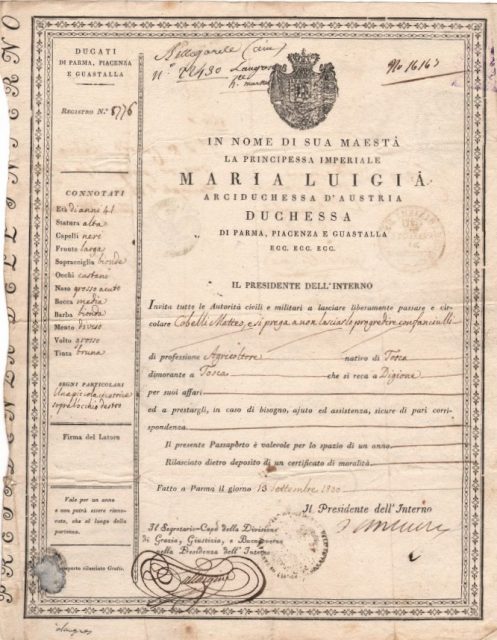 DUCATI
DI PARMA, PIACENZA
E GUASTALLA
REGISTRO N.º 5776
CONNOTATI
Età di anni 41
Statura alta
Capelli neri
Fronte larga
Sopracciglia bionde
Occhi castani
Naso grosso acuto
Bocca media
Barba bionda
Mento
Volto grosso
Tinta bruna
SEGNI PARTICOLARI
Una cicatrice
sopra l'occhio destro
Firma del Latore
Vale per un anno
e non potrà essere rinno-
vato, che al luogo della
partenza.
Passaporto rilasciato Gratis.
PRESIDENZA DELL'INTERNO
N.º 22430
No 16163
IN NOME DI SUA MAESTÀ
LA PRINCIPESSA IMPERIALE
MARIA LUIGIA
ARCIDUCHESSA D'AUSTRIA
DUCHESSA
DI PARMA, PIACENZA E GUASTALLA
ECC. ECC. ECC.
IL PRESIDENTE DELL'INTERNO
Invita tutte le Autorità civili e militari a lasciare liberamente passare e cir-
colare Cobelli Matteo, e si prega a non lasciarlo progredire con fanciulli
di professione Agricoltore nativo di Tosca
dimorante a Tosca che si reca a Digione
per suoi affari
ed a prestargli, in caso di bisogno, ajuto ed assistenza, sicure di pari corri-
spondenza.
Il presente Passaporto è valevole per lo spazio di un anno.
Rilasciato dietro deposito di un certificato di moralità.
Fatto a Parma il giorno 13 Settembre
Il Presidente dell'Interno
Il Segretario-Capo della Divisione
di Grazia, Giustizia, e Buongoverno
nella Presidenza dell'Interno